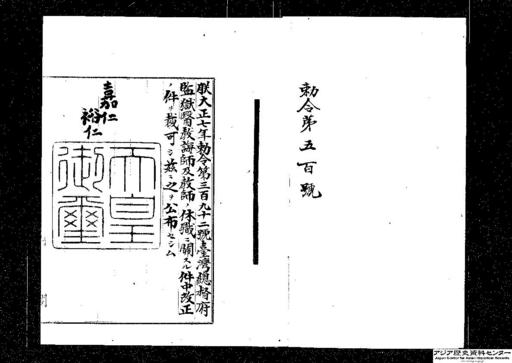 勅令第五百號
朕大正七年勅令第三百九十二號臺灣總督府
監獄醫教誨師及教師ノ休職ニ關スル件中改正
ノ件ヲ裁可シ茲ニ之ヲ公布セシム
嘉仁
裕仁
天皇
御璽
アジア歴史資料センター
Japan Center for Asian Historical Records